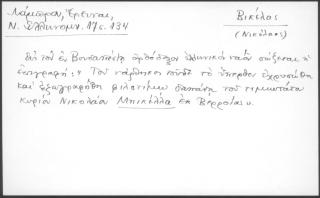 Λάμπρου, Ἔρευναι,
Ν. Ἑλληνομν. 17 σ. 134
Βικέλας
(Νικόλαος)
Εἰς τὸν ἐν Βουδαπέστῃ ὀρθόδοξον ἑλληνικὸν ναὸν σώζεται ἡ
ἐπιγραφή: "Τοῦ νάρθηκος τοῦδε τὸ ὕπερθεν ἐχρυσώθη
καὶ ἐζωγραφήθη φιλοτίμῳ δαπάνῃ τοῦ τιμιωτάτου
κυρίου Νικολάου Μπικέλλα ἐκ Βερροίας".